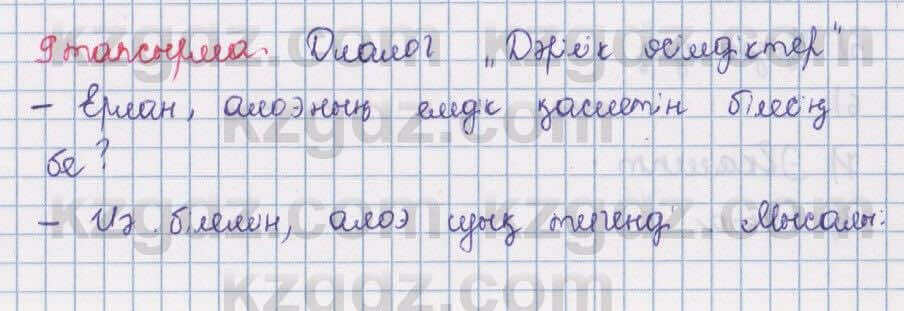 9 тапсырма. Диалог „Дәрілік өсімдіктер"
– Ерлан, алоэның емдік қасиетін білесің
бе?
– Иә білемін, алоэ суық тигенді. Мысалы:
kzgdz.com